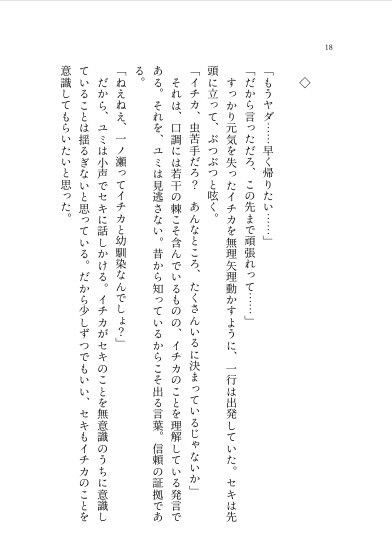 18
◇
「もうヤダ……早く帰りたい……」
「だから言っただろ、この先まで頑張れって……」
すっかり元気を失ったイチカを無理矢理動かすように、一行は出発していた。セキは先
頭に立って、ぶつぶつと呟く。
「イチカ、虫苦手だろ？　あんなところ、たくさんいるに決まっているじゃないか」
それは、口調には若干の棘こそ含んでいるものの、イチカのことを理解している発言で
ある。それを、ユミは見逃さない。昔から知っているからこそ出る言葉。信頼の証拠であ
る。
「ねえねえ、一ノ瀬ってイチカと幼馴染なんでしょ？」
だから、ユミは小声でセキに話しかける。イチカがセキのことを無意識のうちに意識し
ていることは揺るぎないと思っている。だから少しずつでもいい、セキもイチカのことを
意識してもらいたいと思った。